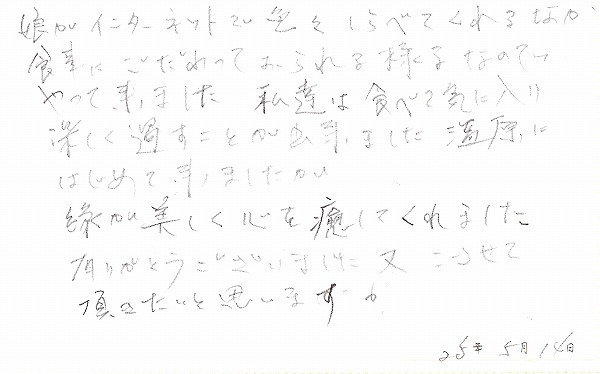 娘がインターネットで色々しらべてくれるなか
食事にこだわっておられる様子なので
やって来ました 私達は食べて気に入り
楽しく過すことが出来ました 湯原に
はじめて来ましたが
緑が美しく心を癒してくれました
有りがとうございました 又 こさせて
頂きたいと思います
25年 5月 14日